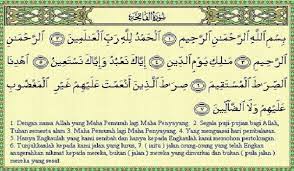 سُورَةُ الْفَاتِحَةِ
بِسْمِ اللَّهِ الرَّحْمَٰنِ الرَّحِيمِ ﴿١﴾ الْحَمْدُ لِلَّهِ رَبِّ الْعَالَمِينَ ﴿٢﴾ الرَّحْمَٰنِ
الرَّحِيمِ ﴿٣﴾ مَالِكِ يَوْمِ الدِّينِ ﴿٤﴾ إِيَّاكَ نَعْبُدُ وَإِيَّاكَ نَسْتَعِينُ ﴿٥﴾ اهْدِنَا
الصِّرَاطَ الْمُسْتَقِيمَ ﴿٦﴾ صِرَاطَ الَّذِينَ أَنْعَمْتَ عَلَيْهِمْ غَيْرِ الْمَغْضُوبِ
عَلَيْهِمْ وَلَا الضَّالِّينَ ﴿٧﴾
1. Dengan nama Allah yang Maha Pemurah lagi Maha Penyayang. 2. Segala puji-pujian bagi Allah,
Tuhan semesta alam 3. Maha Pemurah lagi Maha Penyayang. 4. Yang menguasai hari pembalasan.
5. Hanya Engkaulah yang kami sembah dan hanya kepada Engkaulah kami memohon pertolongan.
6. Tunjukkanlah kepada kami jalan yang lurus, 7 (iaitu) jalan orang-orang yang telah Engkau
anugerahkan nikmat kepada mereka, bukan (jalan) mereka yang dimurkai dan bukan (pula jalan)
mereka yang sesat